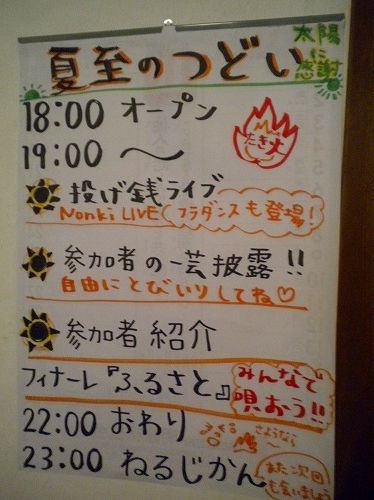 夏至のつどい
太陽
に
感謝
18:00 オープン
19:00 〜
たき火
投げ銭ライブ
Nonki LIVE フラダンスも登場!
参加者の一芸披露!!
自由にとびいりしてね♡
参加者紹介
フィナーレ『ふるさと』
みんなで
唄おう!!
22:00 おわり
さようなら
23:00 ねるじかん
また次回